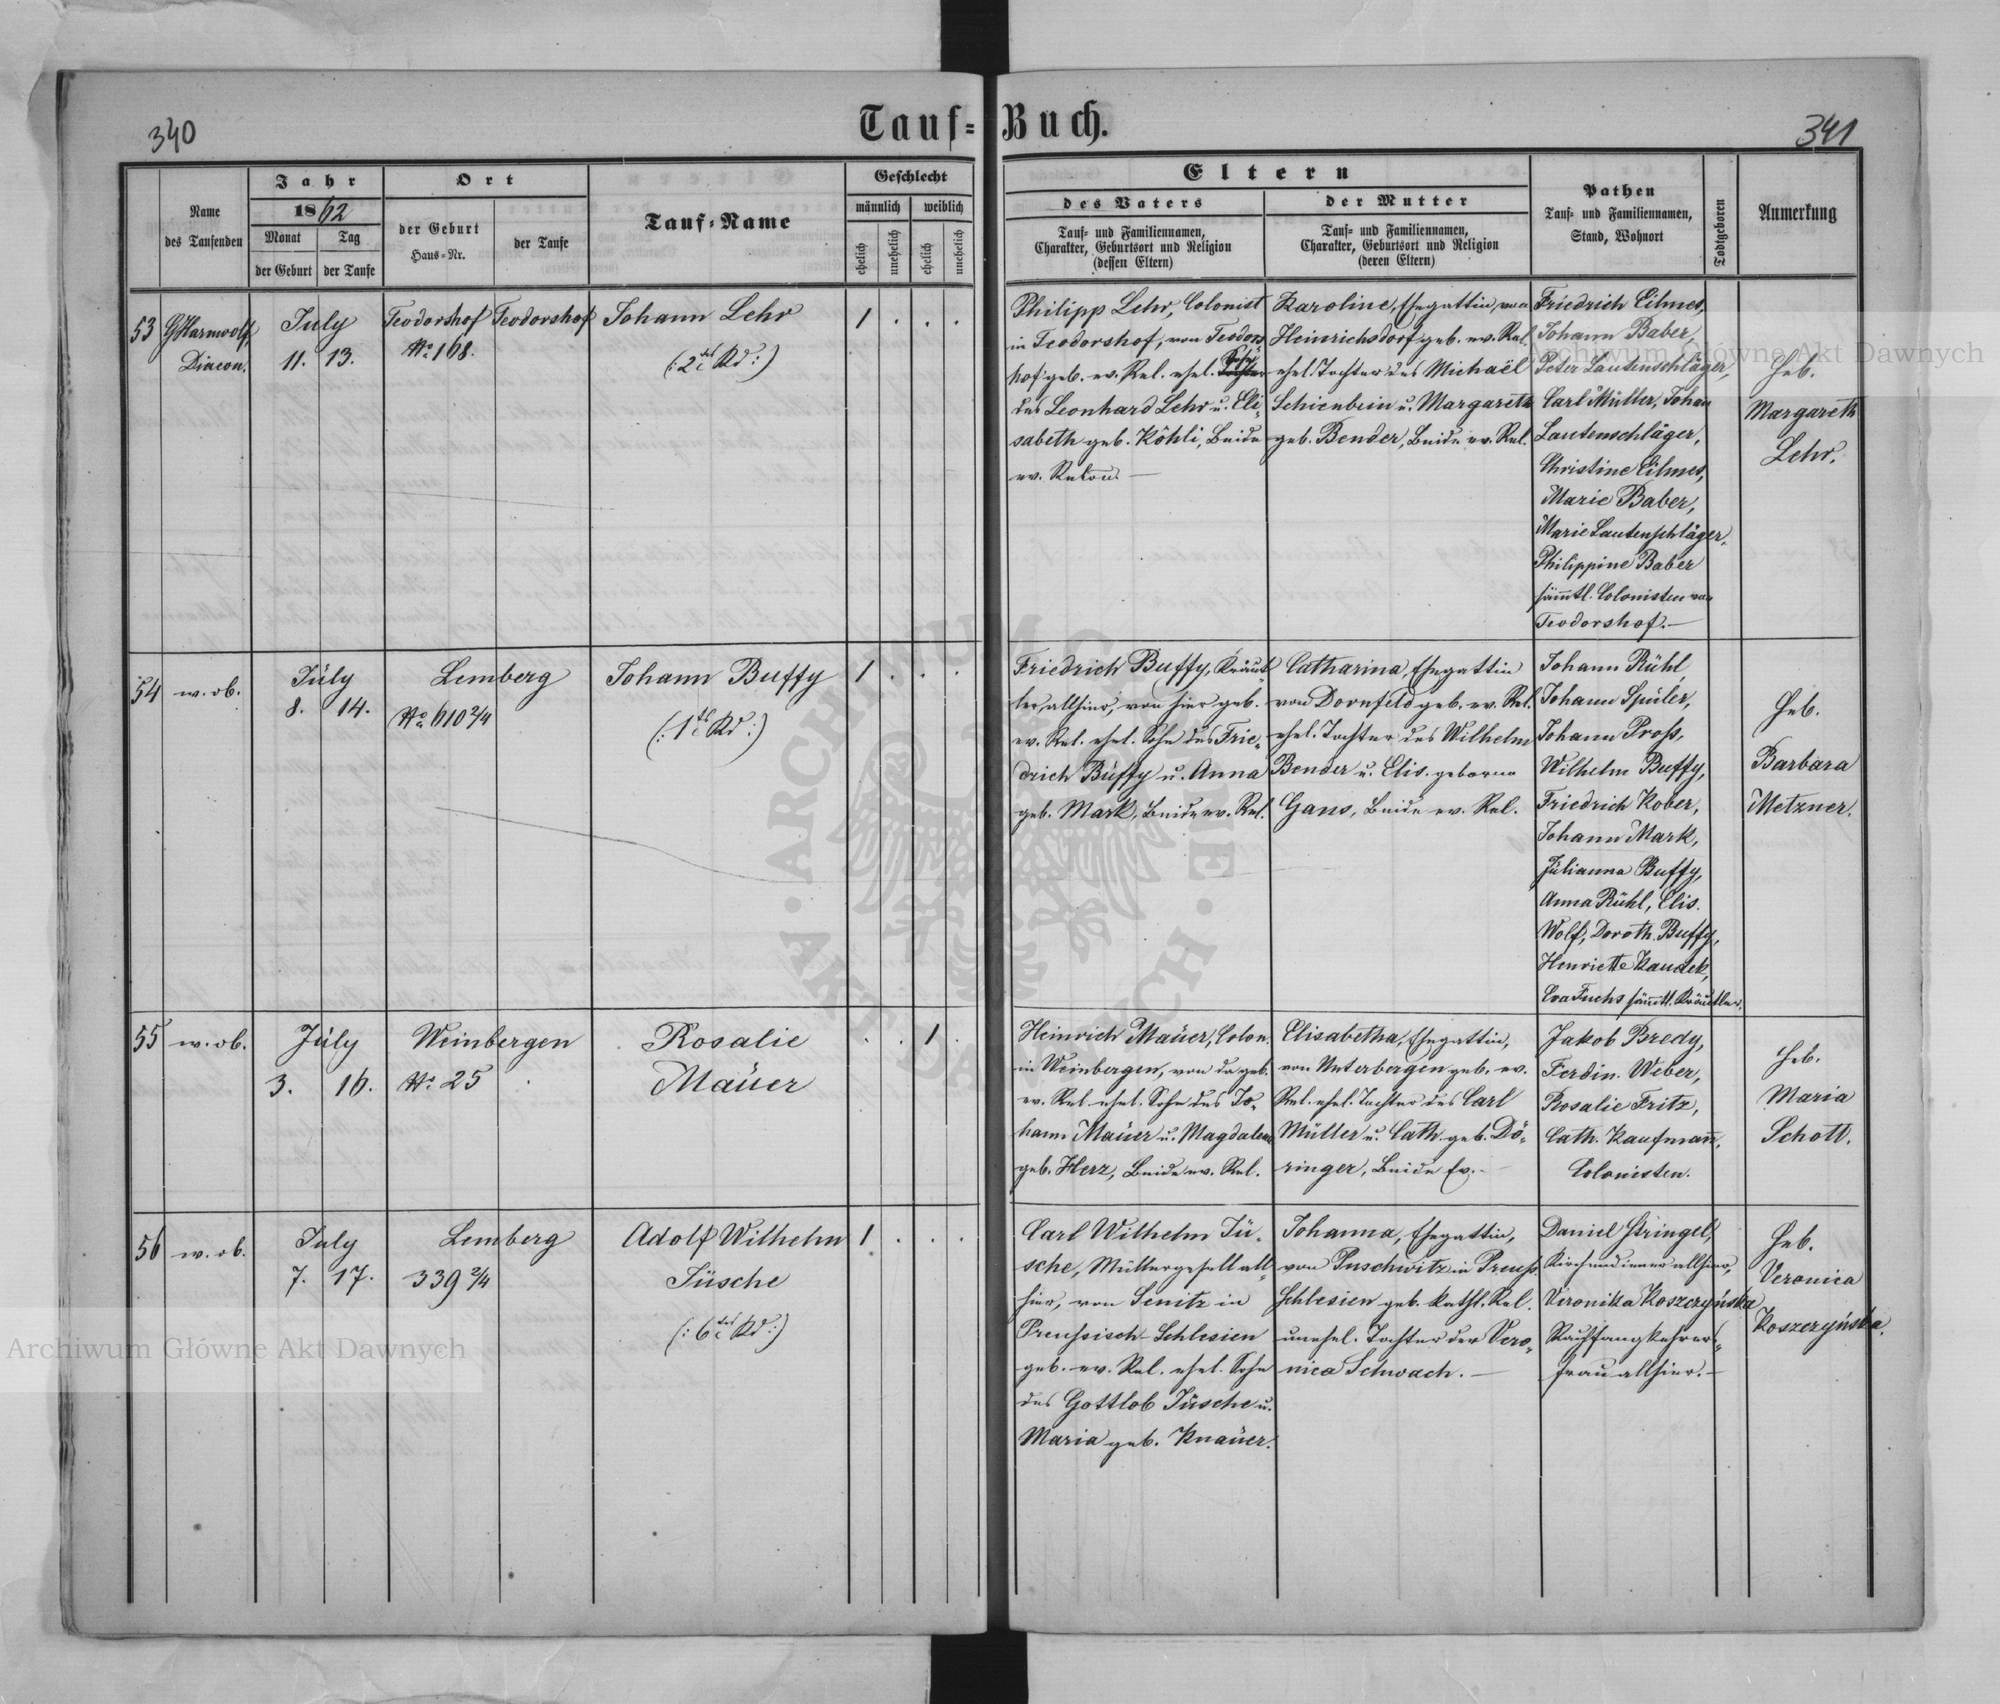 340
Tauf-Buch.
341
Name
des Taufenden
Jahr
1862
Monat
der Geburt
Tag
der Taufe
Ort
der Geburt
Haus-Nr.
der Taufe
Tauf-Name
Geschlecht
männlich
weiblich
ehelich
unehelich
ehelich
unehelich
Eltern
des Vaters
Tauf- und Familiennamen,
Charakter, Geburtsort und Religion
(dessen Eltern)
der Mutter
Tauf- und Familiennamen,
Charakter, Geburtsort und Religion
(deren Eltern)
Pathen
Tauf- und Familiennamen,
Stand, Wohnort
Todtgeboren
Anmerkung
53
GHarmwolf
Diacon.
July
11. 13.
Teodorshof
No 168.
Teodorshof
Johann Lehr
(: 2tes Kd :)
1 . . .
Philipp Lehr, Colonist
in Teodorshof, von Teodors
hof geb. ev. Rel. ehel. Sohn
des Leonhard Lehr u. Eli-
sabeth geb. Köhli, Beide
ev. Relion. —
Karoline, Ehegattin, von
Heinrichsdorf geb. ev. Rel.
ehel. Tochter des Michaël
Schienbein u. Margareth
geb. Bender, Beide ev. Rel.
Friedrich Eilmes,
Johann Baber,
Peter Lautenschläger,
Carl Müller, Johan
Lautenschläger,
Christine Eilmes,
Marie Baber,
Marie Lautenschläger.
Philippine Baber
sämtl. Colonisten von
Teodorshof. —
Heb.
Margareth
Lehr.
54
w. ob.
July
8. 14.
Lemberg
No 610 2/4
Johann Buffy
(: 1tes Kd :)
1 . . .
Friedrich Buffy, Kräut
ler, allhier, von hier geb.
ev. Rel. ehel. Sohn des Frie-
drich Buffy u. Anna
geb. Mark, Beide ev. Rel.
Catharina, Ehegattin
von Dornfeld geb. ev. Rel.
ehel. Tochter des Wilhelm
Bender u. Elis. geborne
Gans, Beide ev. Rel.
Johann Rühl,
Johann Spüler,
Johann Pross,
Wilhelm Buffy,
Friedrich Kober,
Johann Mark,
Julianna Buffy,
Anna Rühl, Elis.
Wolf, Doroth. Buffy,
Henriette Kaudek,
Eva Fuchs sämtl. Kräutler.
Heb.
Barbara
Metzner.
55
w. ob.
July
3. 16.
Weinbergen
No 25
Rosalie
Mauer
. . 1 .
Heinrich Mauer, Colon.
in Weinbergen, von da geb.
ev. Rel. ehel. Sohn des Jo-
hann Mauer u. Magdalena
geb. Herz, Beide ev. Rel.
Elisabetha, Ehegattin,
von Unterbergen geb. ev.
Rel. ehel. Tochter des Carl
Müller u. Cath. geb. Dö-
ringer, Beide Ev. —
Jakob Bredy,
Ferdin. Weber,
Rosalie Fritz,
Cath. Kaufmann,
Colonisten.
Heb.
Maria
Schott.
56
w. ob.
July
7. 17.
Lemberg
339 2/4
Adolf Wilhelm
Jüsche
(: 6tes Kd :)
1 . . .
Carl Wilhelm Jü-
sche, Müllergesell all-
hier, von Senitz in
Preussisch-Schlesien
geb. ev. Rel. ehel. Sohn
des Gottlob Jüsche u.
Maria geb. Knauer.
Johanna, Ehegattin,
von Puschwitz in Preuss.
Schlesien geb. kath. Rel.
unehel. Tochter der Vero-
nica Schwach. —
Daniel Stringel,
Kirchendiener allhier,
Veronika Koszczyńska
Rauchfangkehrers-
frau allhier. —
Heb.
Veronica
Koszczyńska.
Archiwum Główne Akt Dawnych
Archiwum Główne Akt Dawnych